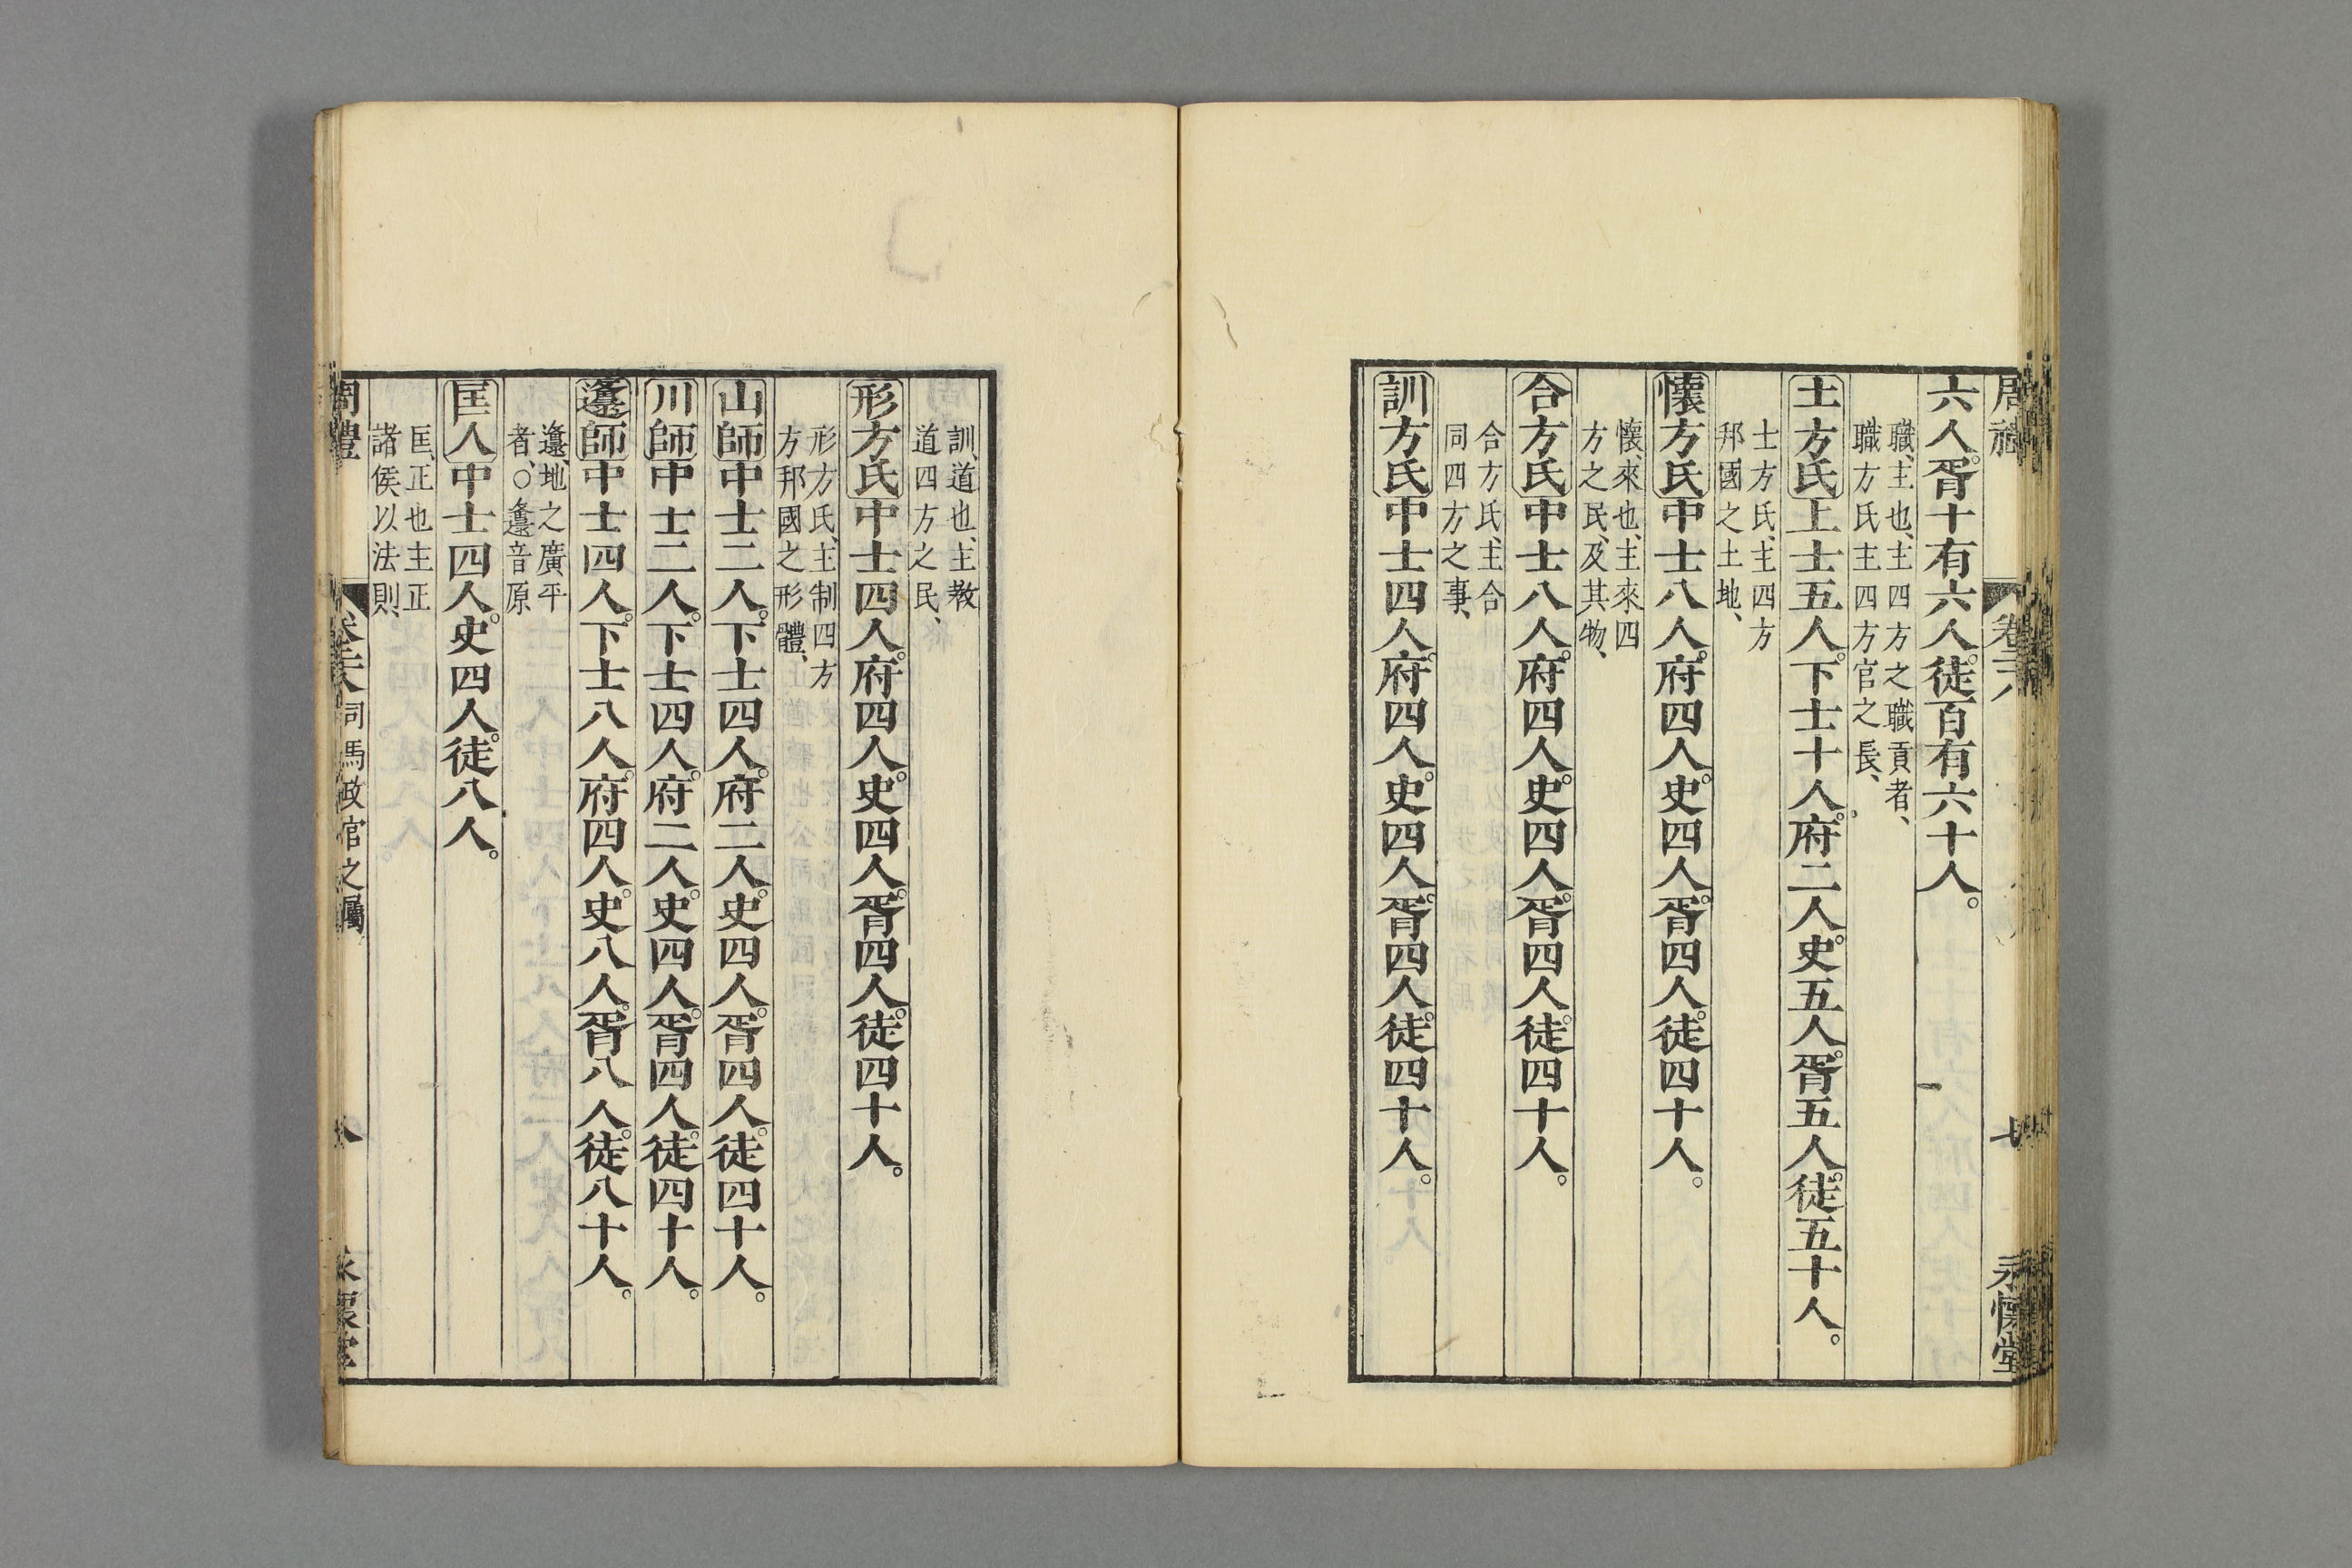 六人。胥十有六人。徒百有六十人。
職、主也、主四方之職貢者、
職方氏主四方官之長、
土方氏上士五人。下士十人。府二人。史五人。胥五人。徒五十人。
土方氏、主四方
邦國之土地、
懷方氏中士八人。府四人。史四人。胥四人。徒四十人。
懷、來也、主來四
方之民、及其物、
合方氏中士八人。府四人。史四人。胥四人。徒四十人。
合方氏、主合
同四方之事、
訓方氏中士四人。府四人。史四人。胥四人。徒四十人。
訓、道也、主教
道四方之民、
形方氏中士四人。府四人。史四人。胥四人。徒四十人。
形方氏、主制四方
方邦國之形體、
山師中士二人。下士四人。府二人。史四人。胥四人。徒四十人。
川師中士二人。下士四人。府二人。史四人。胥四人。徒四十人。
邍師中士四人。下士八人。府四人。史八人。胥八人。徒八十人。
邍、地之廣平
者、○邍音原
匡人中士四人。史四人。徒八人。
匡、正也主正
諸侯以法則、
周禮
司馬政官之屬
八
永懷堂